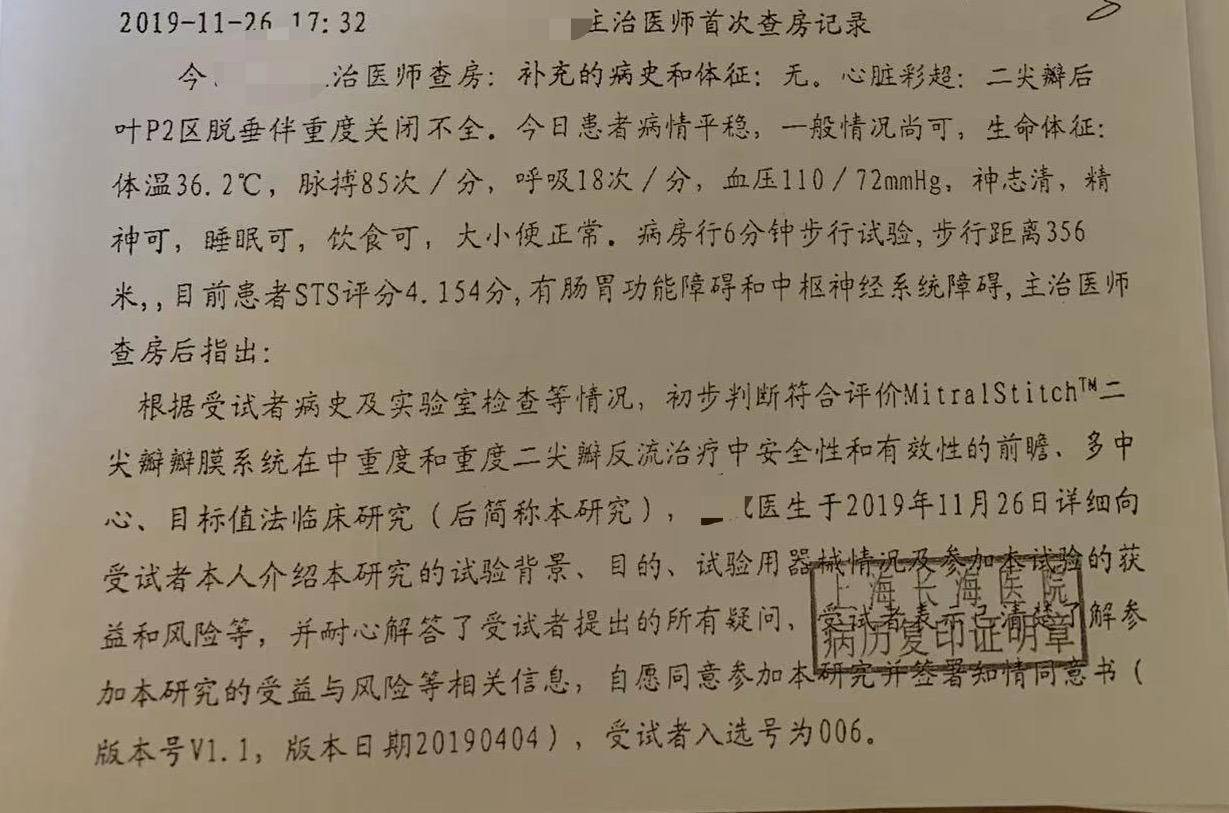 2019-11-26 17:32 主治医师首次查房记录
今 治医师查房：补充的病史和体征：无。心脏彩超：二尖瓣后
叶P2区脱垂伴重度关闭不全。今日患者病情平稳，一般情况尚可，生命体征：
体温36.2℃，脉搏85次／分，呼吸18次／分，血压110／72mmHg，神志清，精
神可，睡眠可，饮食可，大小便正常。病房行6分钟步行试验,步行距离356
米,,目前患者STS评分4.154分,有肠胃功能障碍和中枢神经系统障碍,主治医师
查房后指出：
根据受试者病史及实验室检查等情况，初步判断符合评价MitralStitch™二
尖瓣瓣膜系统在中重度和重度二尖瓣反流治疗中安全性和有效性的前瞻、多中
心、目标值法临床研究（后简称本研究），医生于2019年11月26日详细向
受试者本人介绍本研究的试验背景、目的、试验用器械情况及参加本试验的获
益和风险等，并耐心解答了受试者提出的所有疑问，受试者表示已清楚了解参
加本研究的受益与风险等相关信息，自愿同意参加本研究并签署知情同意书（
版本号V1.1，版本日期20190404），受试者入选号为006。
上海长海医院
病历复印证明章